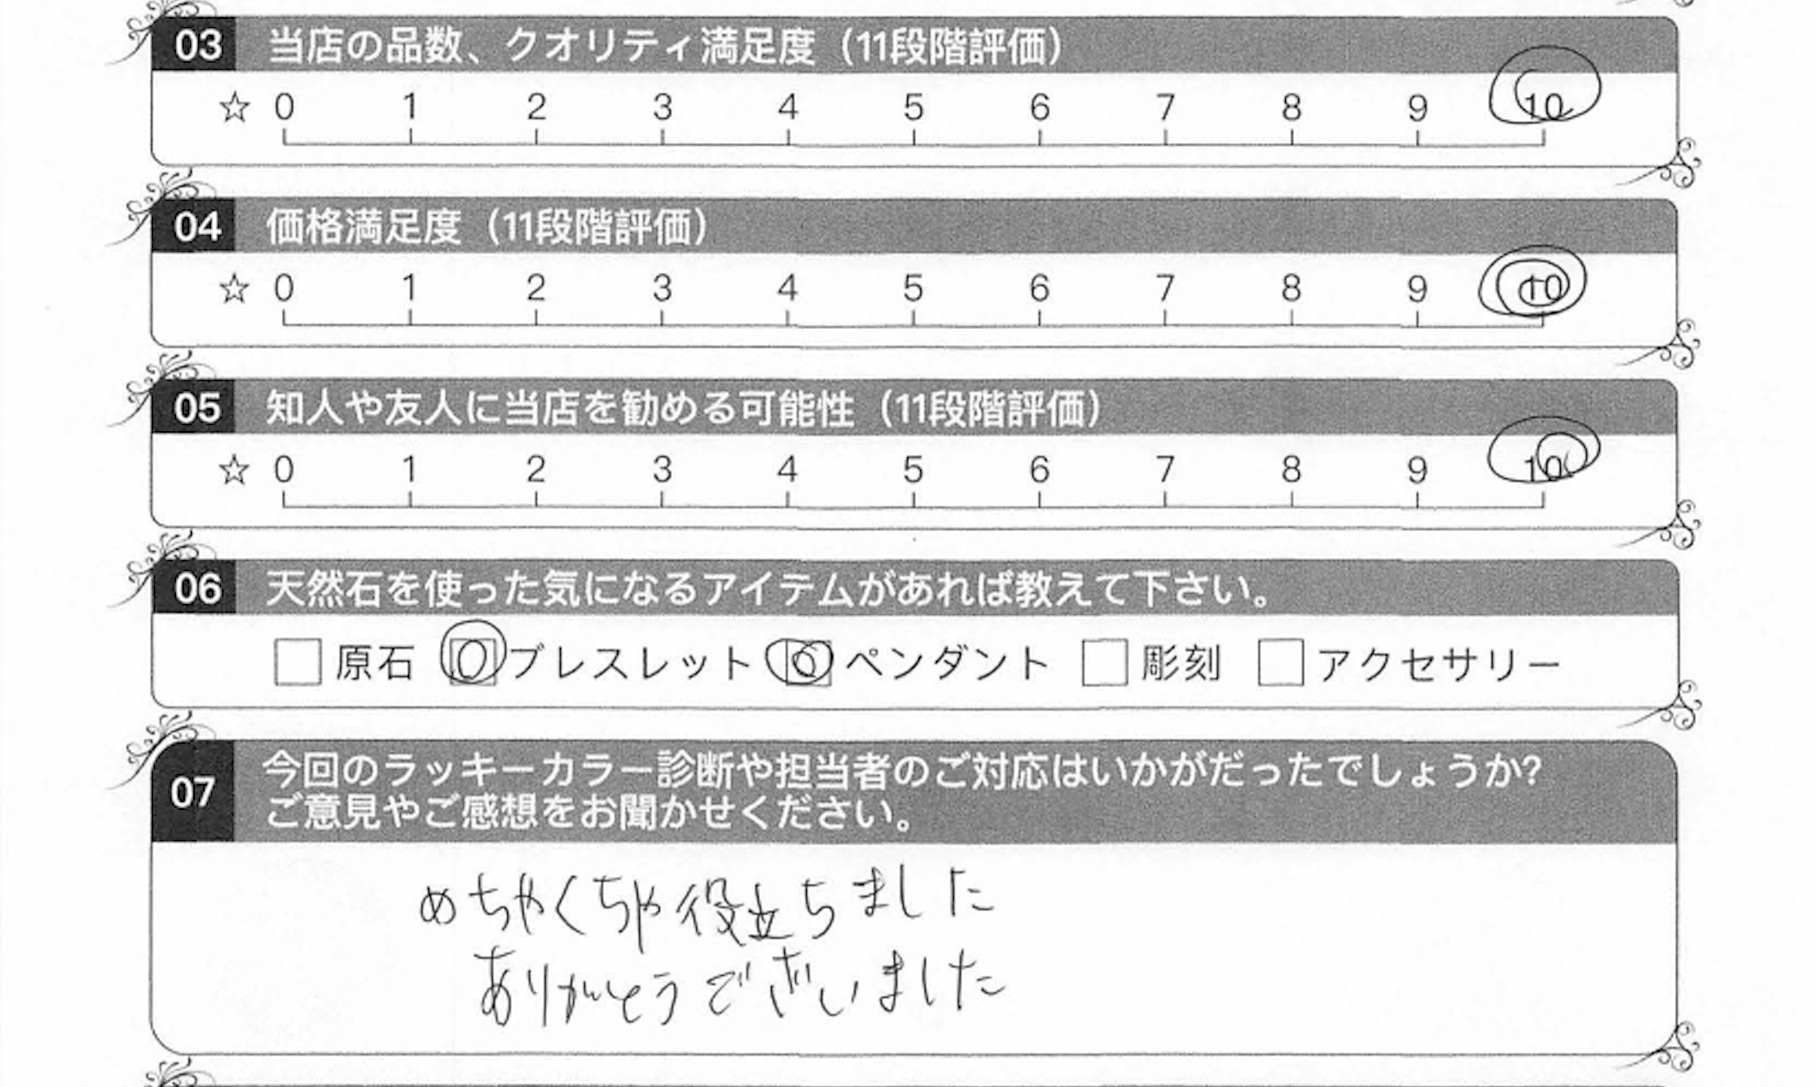 03 当店の品数、クオリティ満足度（11段階評価）
☆ 0 1 2 3 4 5 6 7 8 9 10
04 価格満足度（11段階評価）
☆ 0 1 2 3 4 5 6 7 8 9 10
05 知人や友人に当店を勧める可能性（11段階評価）
☆ 0 1 2 3 4 5 6 7 8 9 10
06 天然石を使った気になるアイテムがあれば教えて下さい。
原石 ブレスレット ペンダント 彫刻 アクセサリー
07 今回のラッキーカラー診断や担当者のご対応はいかがだったでしょうか?
ご意見やご感想をお聞かせください。
めちゃくちゃ役立ちました
ありがとうございました